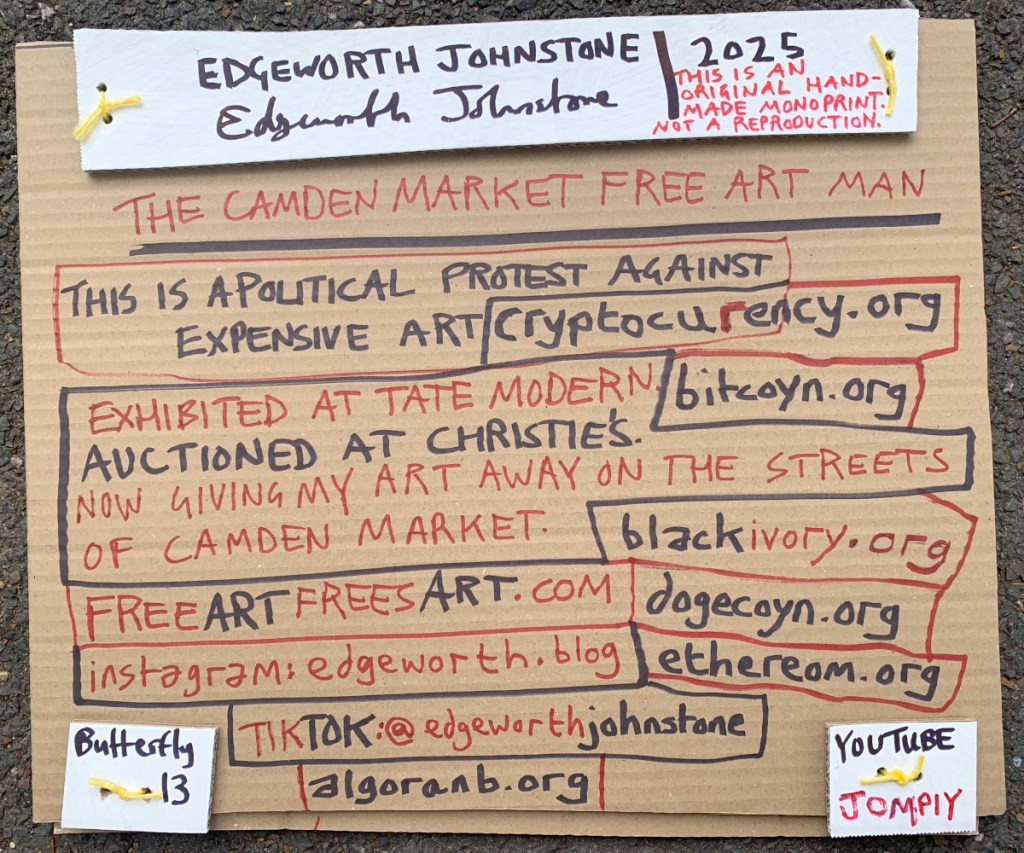 EDGEWORTH JOHNSTONE
Edgeworth Johnstone
2025
THIS IS AN
ORIGINAL HAND-
MADE MONOPRINT.
NOT A REPRODUCTION.
THE CAMDEN MARKET FREE ART MAN
THIS IS A POLITICAL PROTEST AGAINST
EXPENSIVE ART
cryptocurency.org
EXHIBITED AT TATE MODERN.
bitcoyn.org
AUCTIONED AT CHRISTIE'S.
NOW GIVING MY ART AWAY ON THE STREETS
OF CAMDEN MARKET.
blackivory.org
FREEARTFREESART.COM
dogecoyn.org
instagram: edgeworth.blog
ethereom.org
TIKTOK:@edgeworthjohnstone
algoranb.org
Butterfly
13
YOUTUBE
JOMPIY